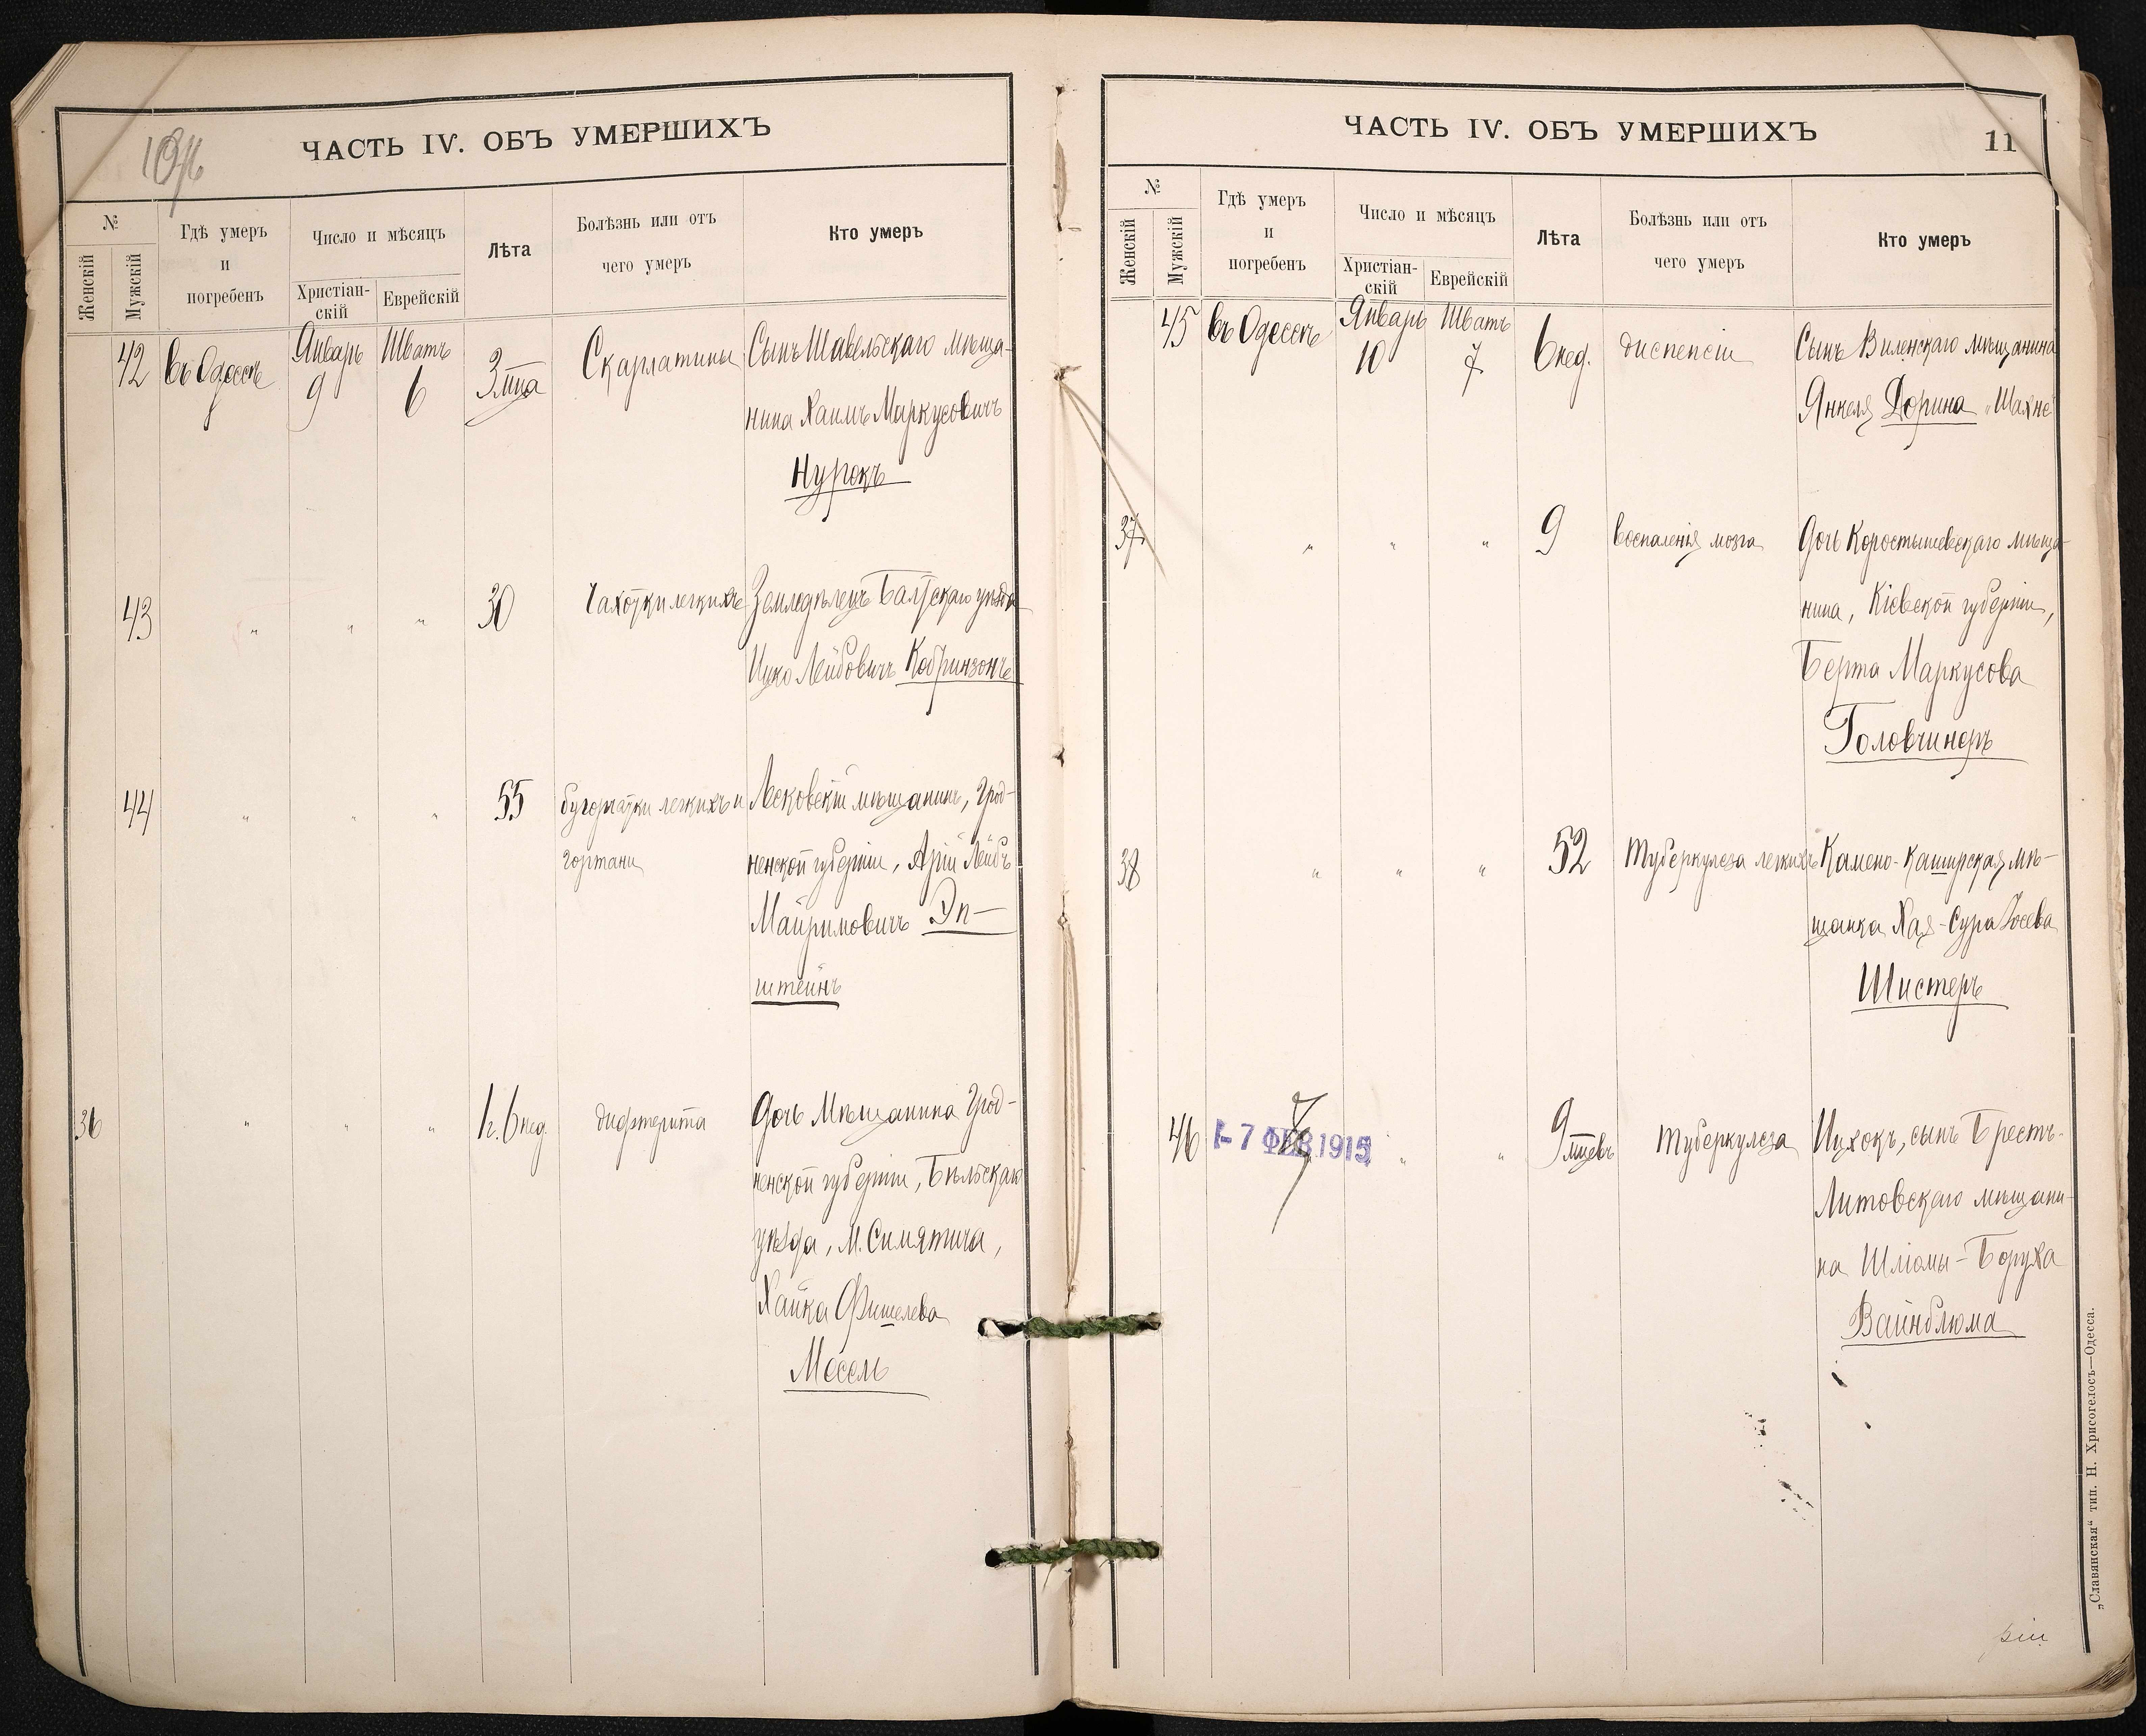 ЧАСТЬ IV. ОБЪ УМЕРШИХЪ
№
Женскій
Мужскій
Гдѣ умеръ
и
погребенъ
Число и мѣсяцъ
Христіан-
скій
Еврейскій
Лѣта
Болѣзнь или отъ
чего умеръ
Кто умеръ
42 въ Одессѣ Январь 9 Шватъ 6 3 мца Скарлатины Сынъ Шавельскаго мѣща-
нина Хаимъ Маркусовичъ
Нурокъ
43 " " " 30 Чахотки легкихъ Земледѣлецъ Балтскаго уѣзда
Ицко Лейбовичъ Кобринзонъ
44 " " " 55 бугорчатки легкихъ и Лековскій мѣщанинъ, Грод-
гортани ненской губерніи, Арій Лейбъ
Майримовичъ Эп-
штейнъ
36 " " " 1г. 6 нед. дифтерита Дочь Мѣщанина Грод-
ненской губерніи, Бѣльскаго
уѣзда, М. Симятича,
Хайка Фишелева
Месель
ЧАСТЬ IV. ОБЪ УМЕРШИХЪ
11
№
Женскій
Мужскій
Гдѣ умеръ
и
погребенъ
Число и мѣсяцъ
Христіан-
скій
Еврейскій
Лѣта
Болѣзнь или отъ
чего умеръ
Кто умеръ
45 въ Одессѣ Январь 10 Шватъ 7 6 нед. диспепсіи Сынъ Виленскаго мѣщанина
Янкеля Дорина „Шахне"
37 " " " 9 воспаленія мозга Дочь Коростышевскаго мѣща-
нина, Кіевской губерніи,
Берта Маркусова
Головчинеръ
38 " " " 52 Туберкулеза легкихъ Камено-Каширская мѣ-
щанка Хая-Сура Іосева
Шистеръ
46 - 7 ФЕВ. 1915 " " 9 мцевъ Туберкулеза Ицхокъ, сынъ Брестъ-
Литовскаго мѣщани-
на Шліомы-Боруха
Вайнблюма
„Славянская“ тип. Н. Хрисогелосъ—Одесса.